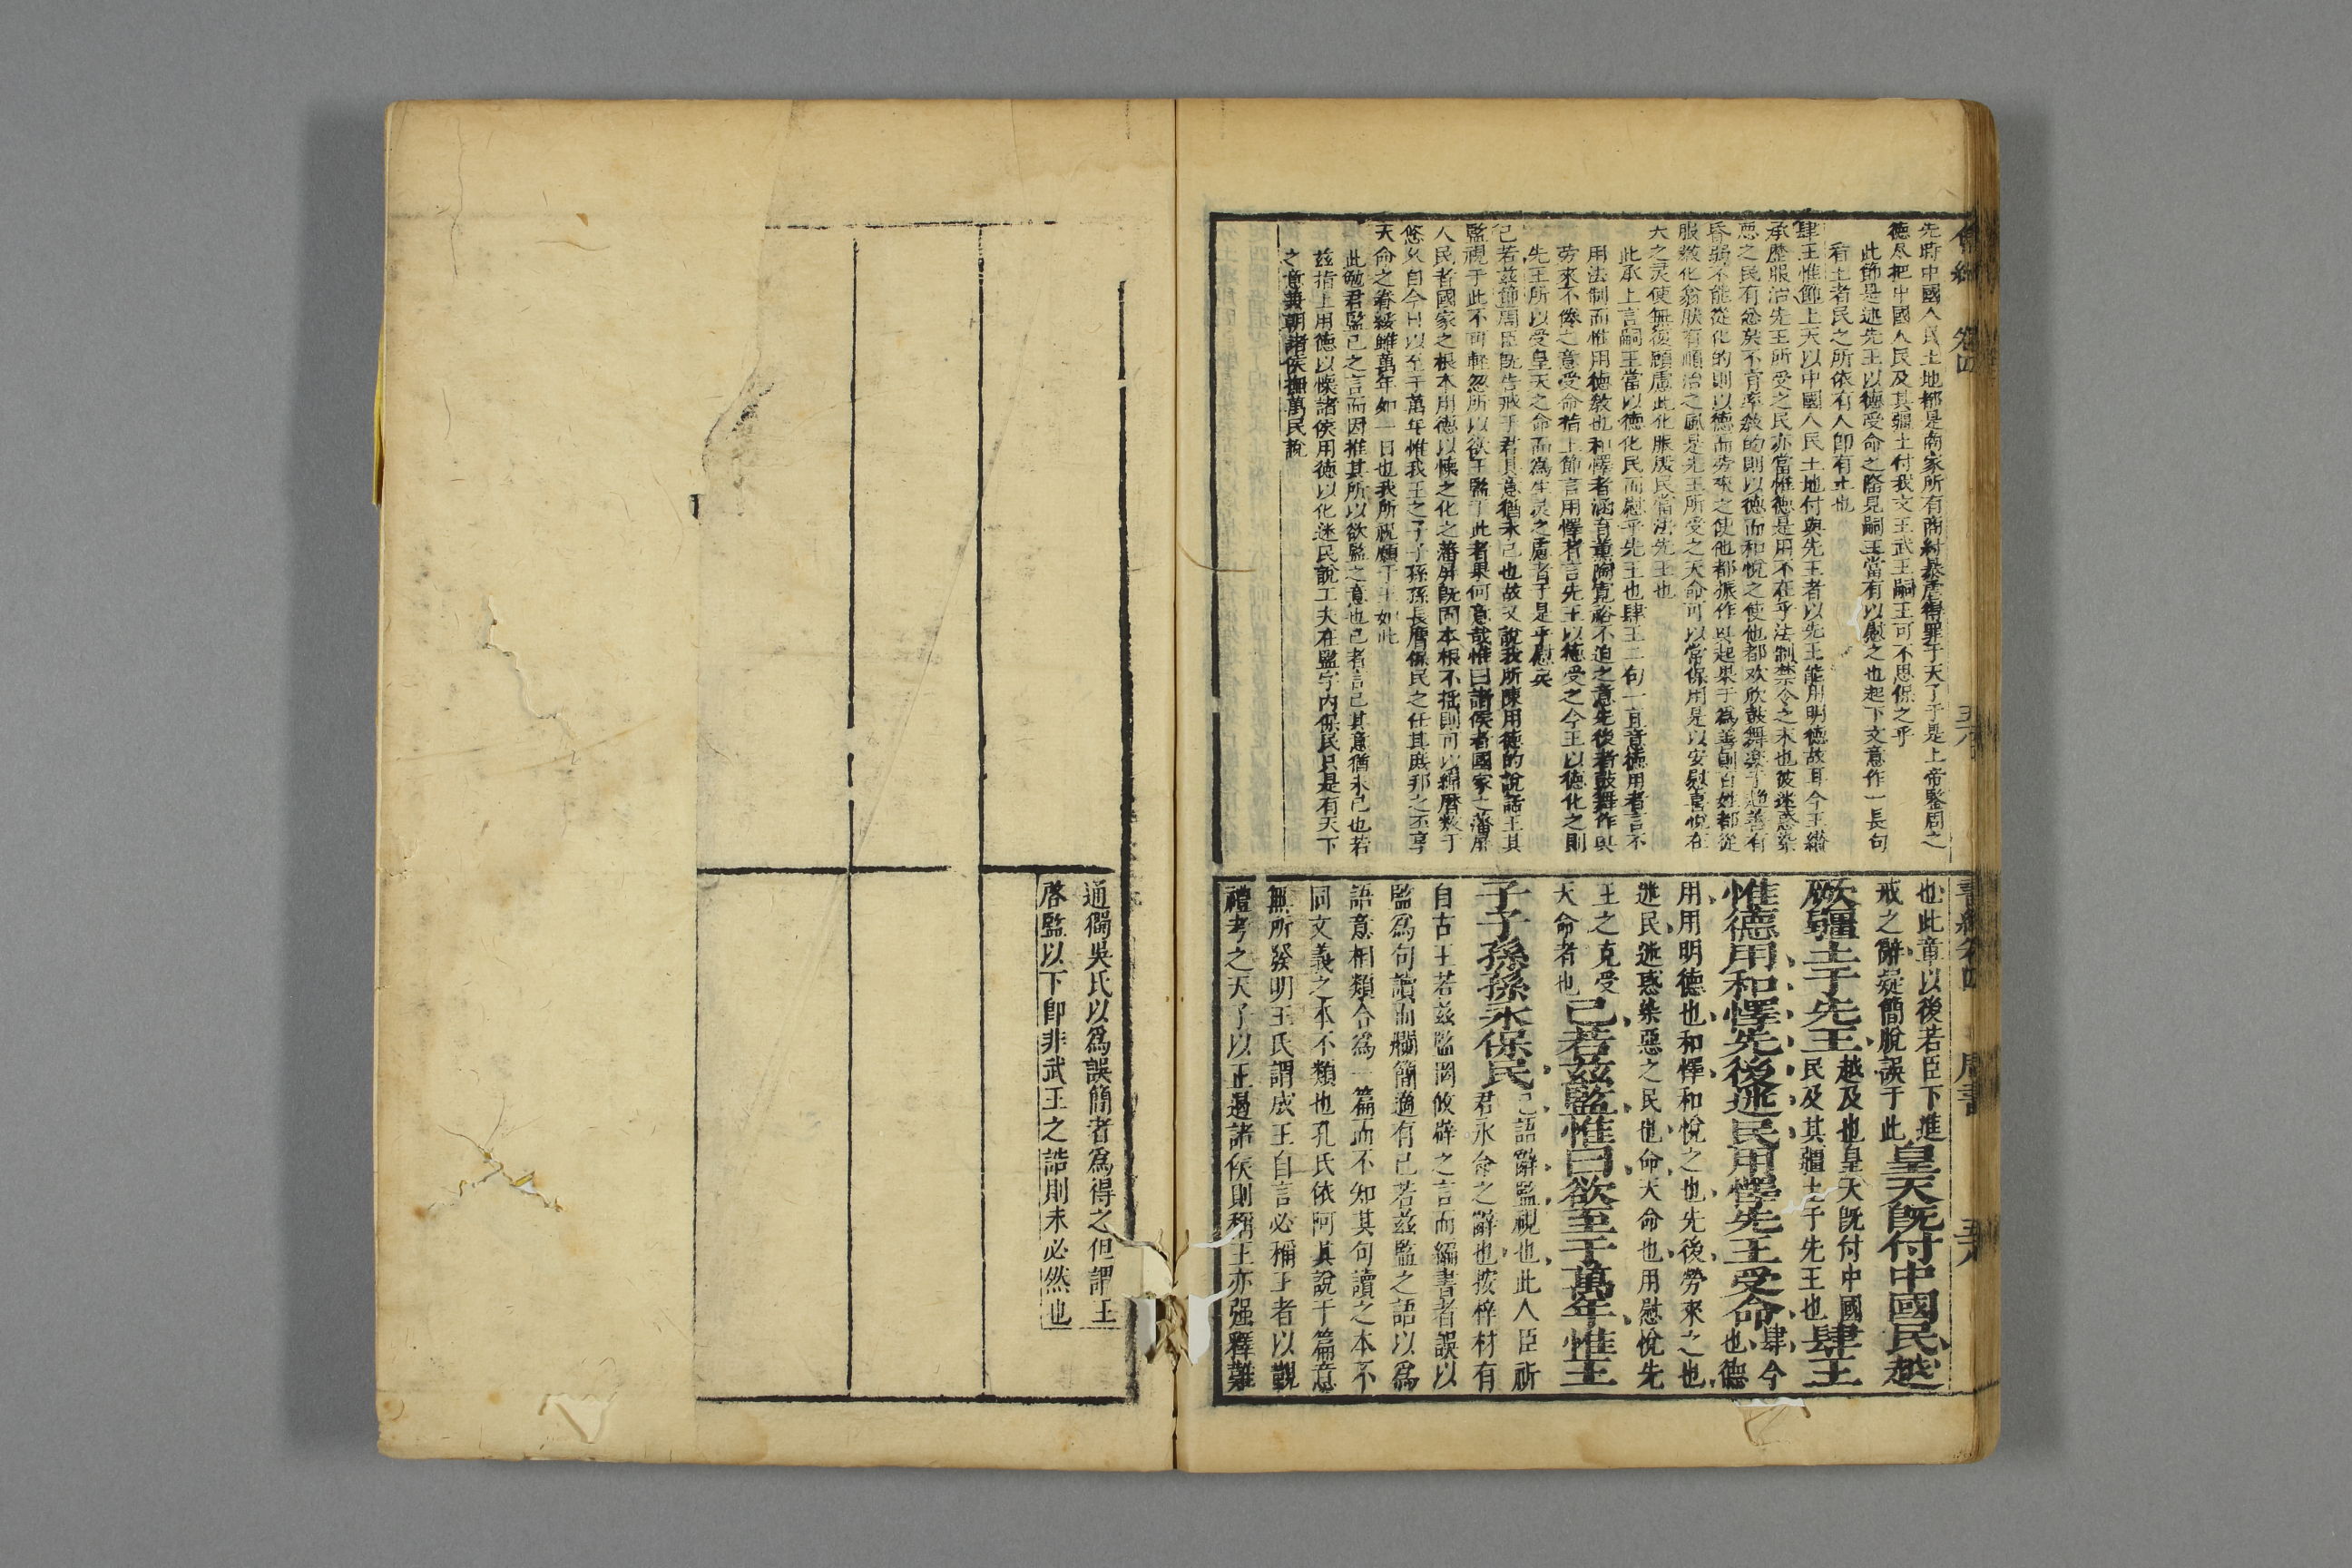 先時中國人民土地都是商家所有商紂暴虐得罪于天了于是上帝鑒周之
德尽把中國人民及其疆土付我文王武王嗣王可不思保之乎
此節是述先王以德受命之隆見嗣王當有以慰之也起下文意作一長句
看土者民之所依有人卽有土也
肆王惟節上天以中國人民土地付與先王者以先王能用明德故耳今王纘
承歷服治先王所受之民亦當惟德是用不在乎法制禁令之末也彼迷惑染
惡之民有忿戾不肯率敎的則以德而和悅之使他都欢欣鼓舞楽于趋善有
昏弱不能從化的則以德而劳來之使他都振作興起果于為善則百姓都從
服敎化翕肰有順治之風是先王所受之天命可以常保用是以安慰喜悅在
天之灵使無復顧慮此化服殷民當法先王也
此承上言嗣王當以德化民而慰乎先王也肆王二句一直意德用者言不
用法制而惟用德敎也和懌者涵育薰陶寛裕不迫之意先後者鼓舞作興
劳來不倦之意受命指上節言用懌者言先王以德受之今王以德化之則
先王所以受皇天之命而為生灵之慮者于是乎慰矣
已若兹節周臣旣告戒于君其意猶未已也故又說我所陳用德的說話王其
監視于此不可輕忽所以欲王監于此者果何意哉惟曰諸侯者國家之藩屏
人民者國家之根本用德以懐之化之藩屏旣固本根不抵則可以綿曆數于
悠久自今日以至于萬年惟我王之子子孫孫長膺保民之任其庶邦之丕享
天命之眷綏雖萬年如一日也我所祝願于王如此
此勉君監己之言而因推其所以欲監之意也已者言已其意猶未已也若
兹指上用德以懐諸侯用德以化迷民說工夫在監字內保民只是有天下
之意兼朝諸侯撫萬民說
書經卷四 周書 五八
也此章以後若臣下進
戒之辭疑簡脫誤于此皇天旣付中國民越
厥疆土于先王越及也皇天旣付中國民及其疆土于先王也肆王
惟德用和懌先後迷民用懌先王受命肆今也德
用用明德也和懌和悅之也先後勞來之也
迷民迷惑染惡之民也命天命也用慰悅先
王之克受天命者也已若兹監惟曰欲至于萬年惟王
子子孫孫永保民已語辭監視也此人臣祈君永命之辭也按梓材有
自古王若兹監罔攸辟之言而編書者誤以
監為句讀而爛簡適有已若兹監之語以為
語意相類合為一篇而不知其句讀之本不
同文義之本不類也孔氏依阿其說于篇意
無所發明王氏謂成王自言必稱王者以觀
禮考之天子以正遏諸侯則稱王亦强釋難
通獨吳氏以為誤簡者為得之但謂王
啓監以下卽非武王之誥則未必然也